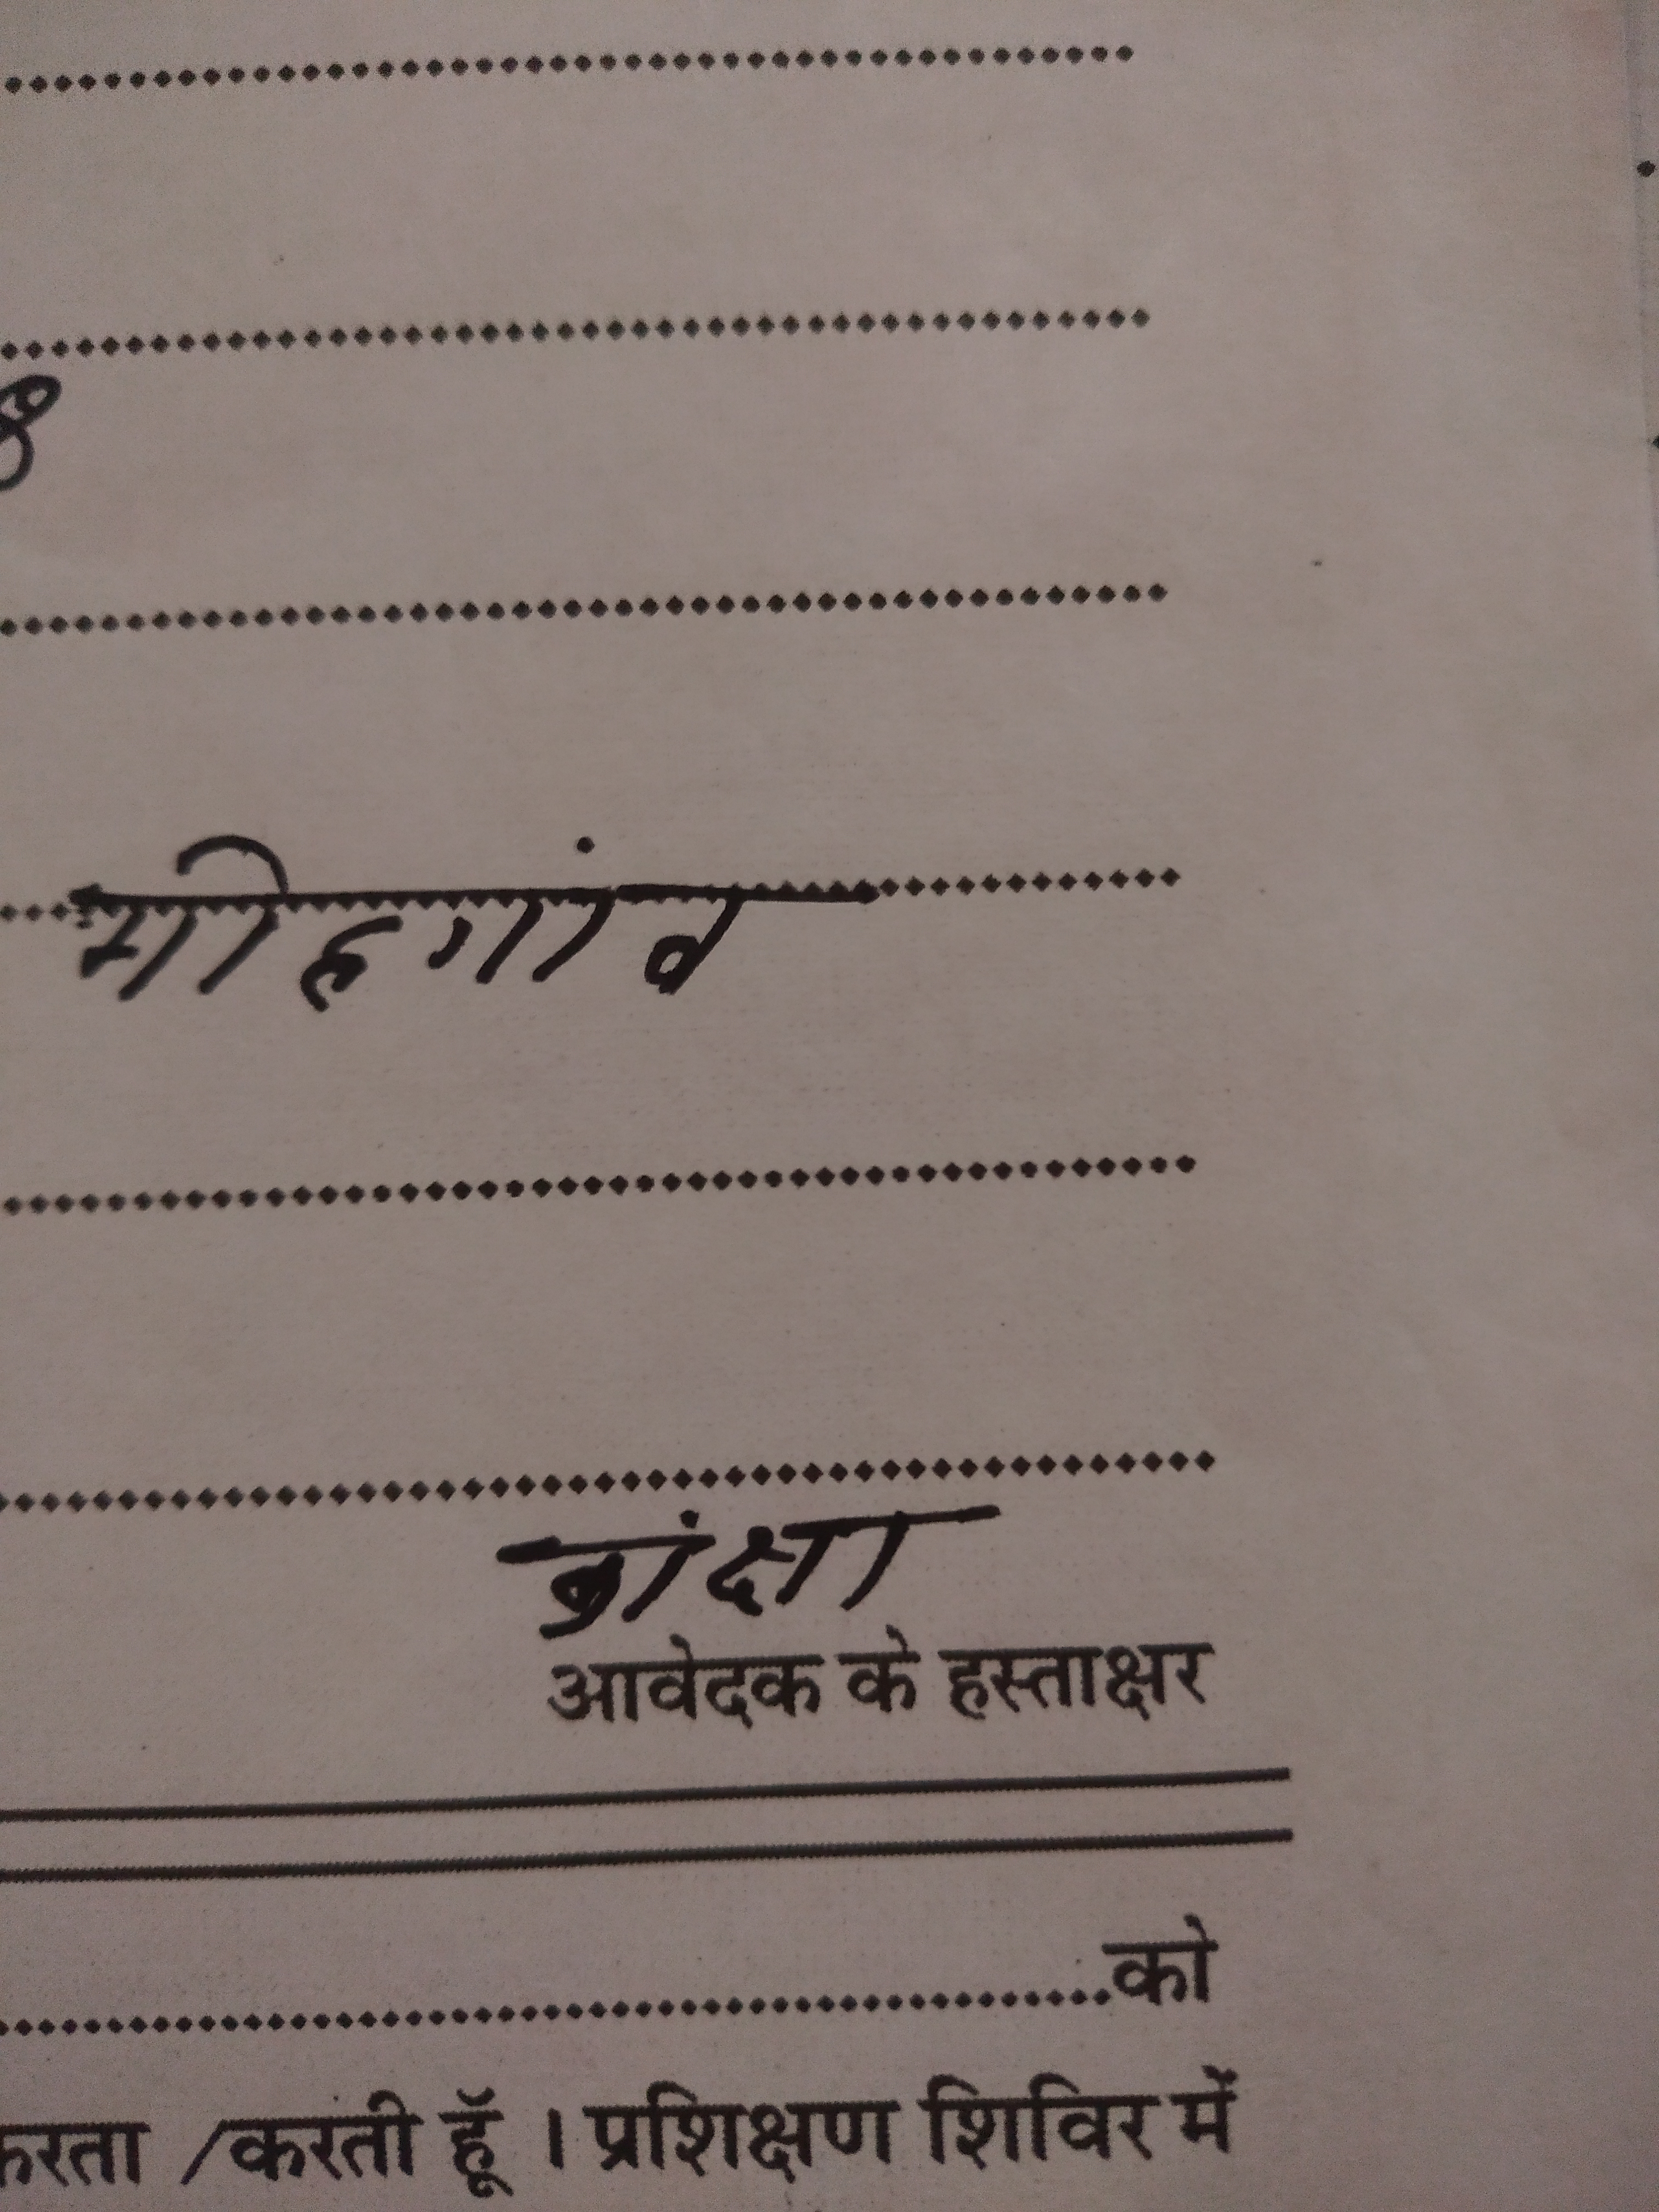 मोहगांव
कांक्षा
आवेदक के हस्ताक्षर
को
करता /करती हूँ । प्रशिक्षण शिविर में